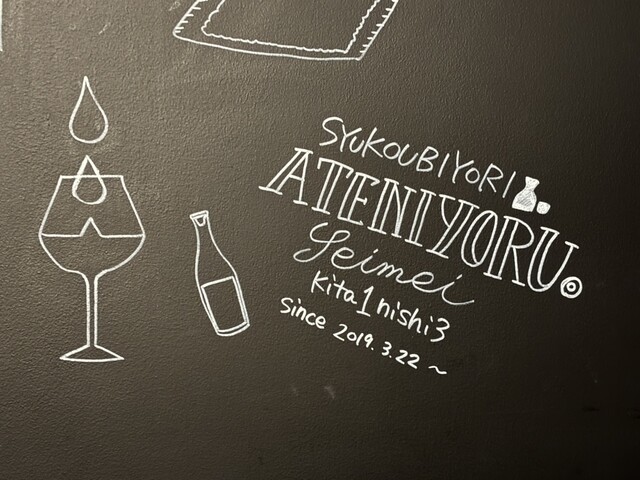 SYUKOUBIYORI
ATENIYORU.
Seimei
Kita 1 nishi 3
Since 2019.3.22 ~